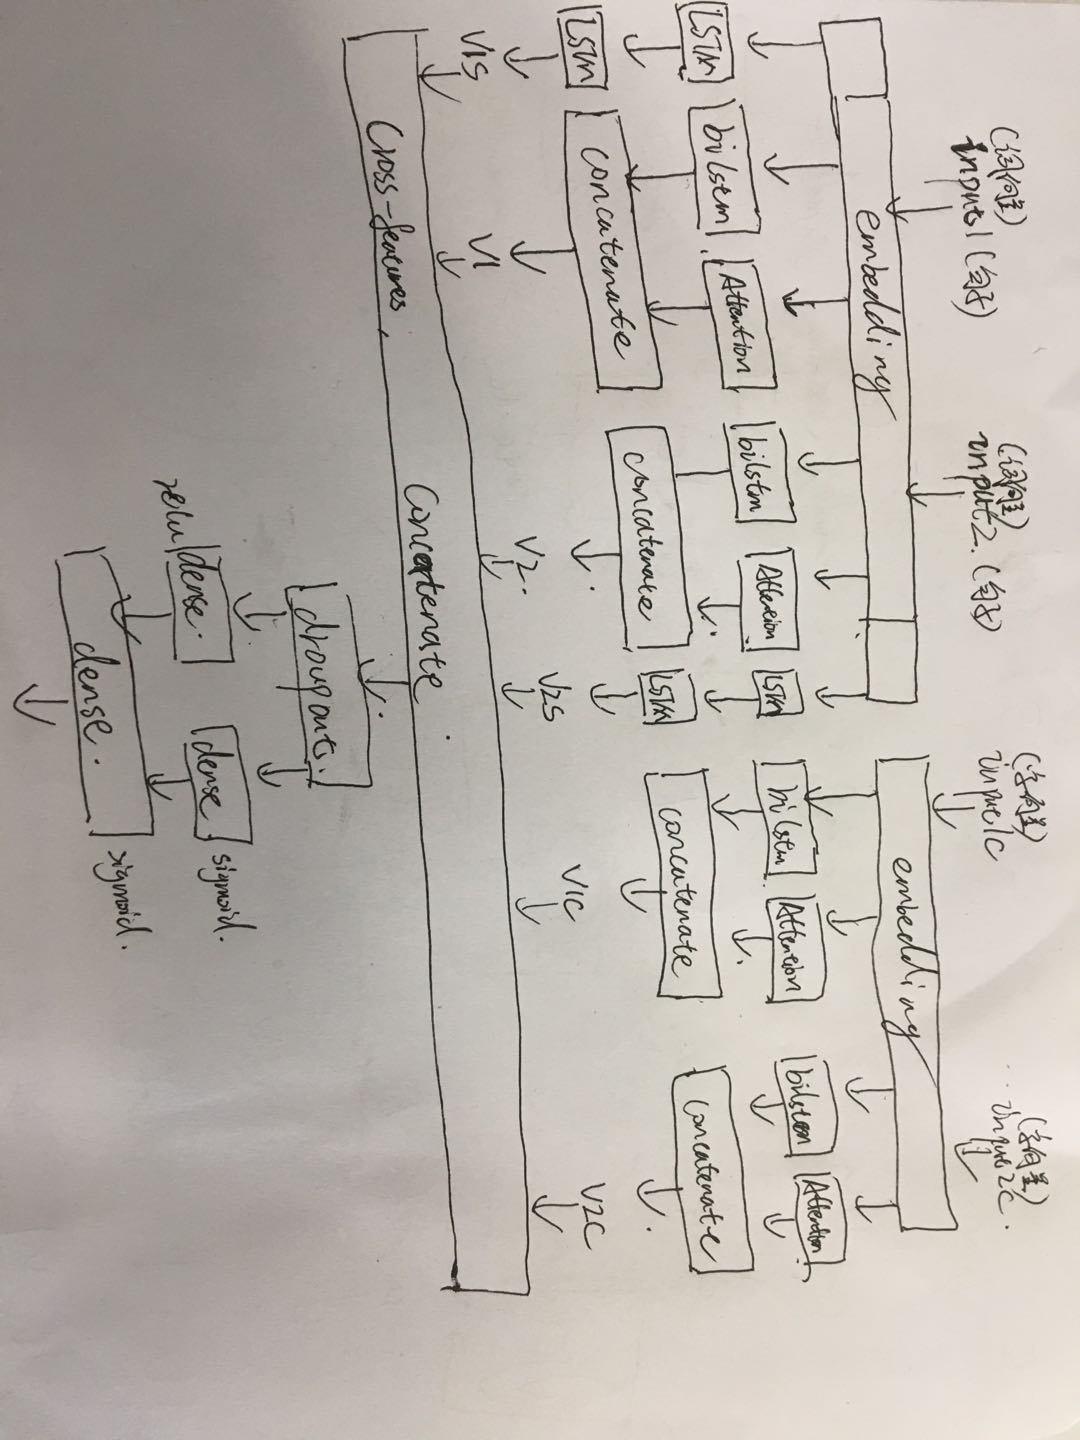 (词向量)
input1 (句子)
(词向量)
input2. (句子)
(字向量)
input1c
(字向量)
input2c.
embedding
embedding
LSTM
bilstm
Attention
bilstm
Attention
LSTM
bilstm
Attention
bilstm
Attention
LSTM
concatenate
concatenate
LSTM
concatenate
concatenate
V1S
V1
V2.
V2S
V1C
V2C
Cross-features.
Concatenate
droupout.
relu
dense.
dense
sigmoid.
dense.
sigmoid.